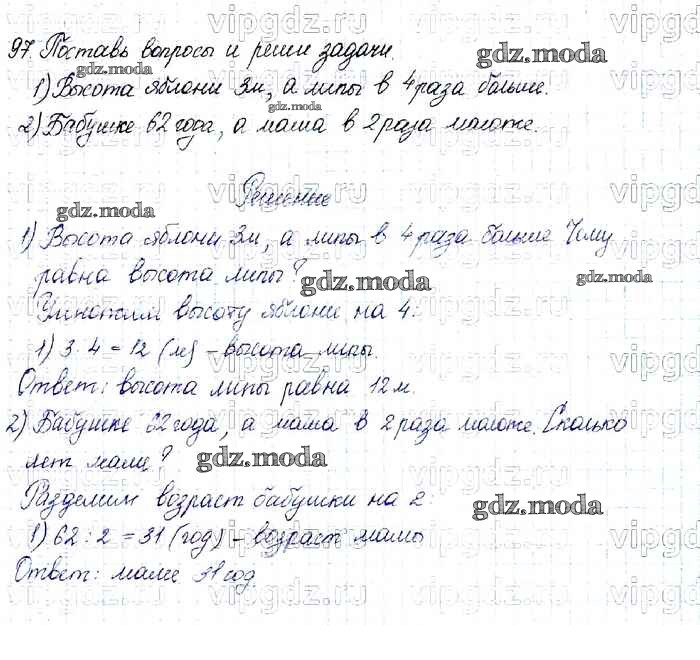 97. Поставь вопросы и реши задачи.
1) Высота яблони 3м, а липы в 4 раза больше.
2) Бабушке 62 года, а мама в 2 раза моложе.
Решение
1) Высота яблони 3м, а липы в 4 раза больше Чему
равна высота липы?
Умножим высоту яблони на 4:
1) 3 · 4 = 12 (м) – высота липы.
Ответ: высота липы равна 12 м.
2) Бабушке 62 года, а мама в 2 раза моложе. Сколько
лет маме?
Разделим возраст бабушки на 2:
1) 62 : 2 = 31 (год) – возраст мамы
Ответ: маме 31 год
gdz.moda
gdz.moda
gdz.moda
gdz.moda
gdz.moda
gdz.moda
gdz.moda
gdz.moda
vipgdz.ru